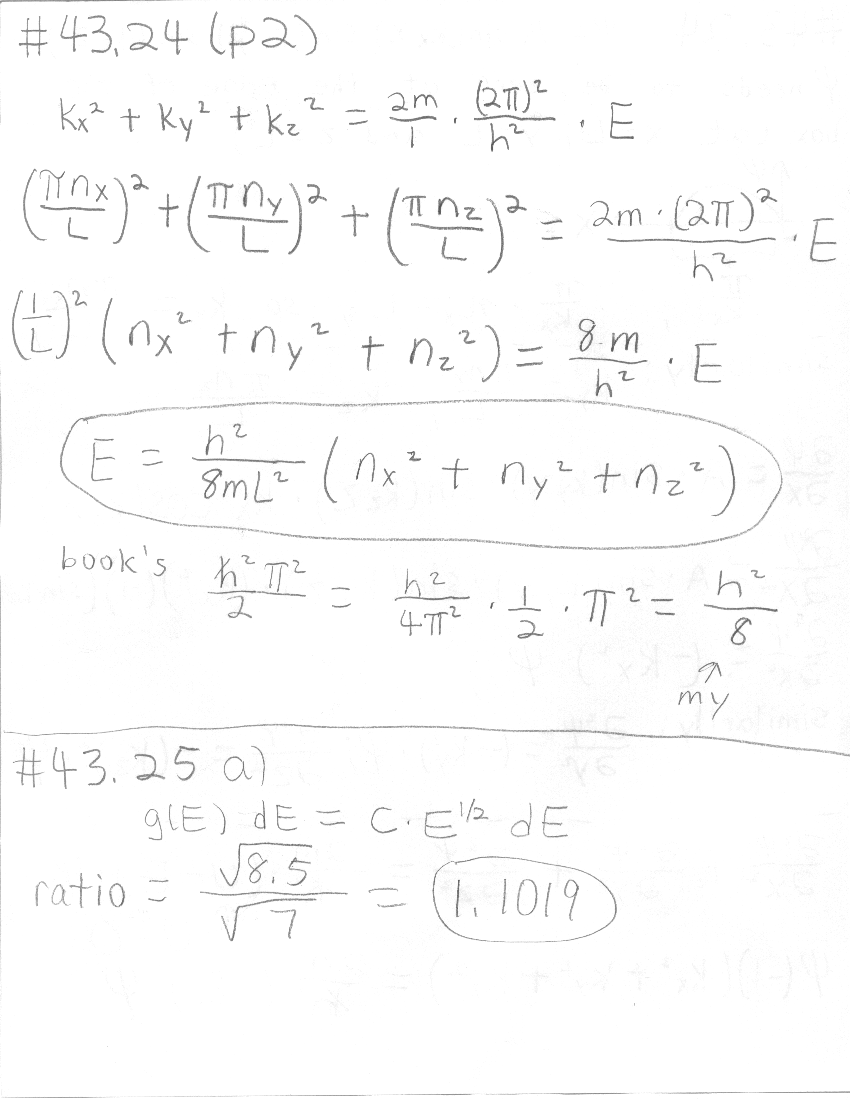 #43.24 (p2)
kx² + ky² + kz² = 2m/1 · (2π)²/h² · E
(πnx/L)² + (πny/L)² + (πnz/L)² = 2m·(2π)²/h² · E
(1/L)² (nx² + ny² + nz²) = 8m/h² · E
E = h²/8mL² (nx² + ny² + nz²)
book's ħ²π²/2 = h²/4π² · 1/2 · π² = h²/8
↑
my
#43.25 a)
g(E) dE = C·E^1/2 dE
ratio = √8.5/√7 = 1.1019